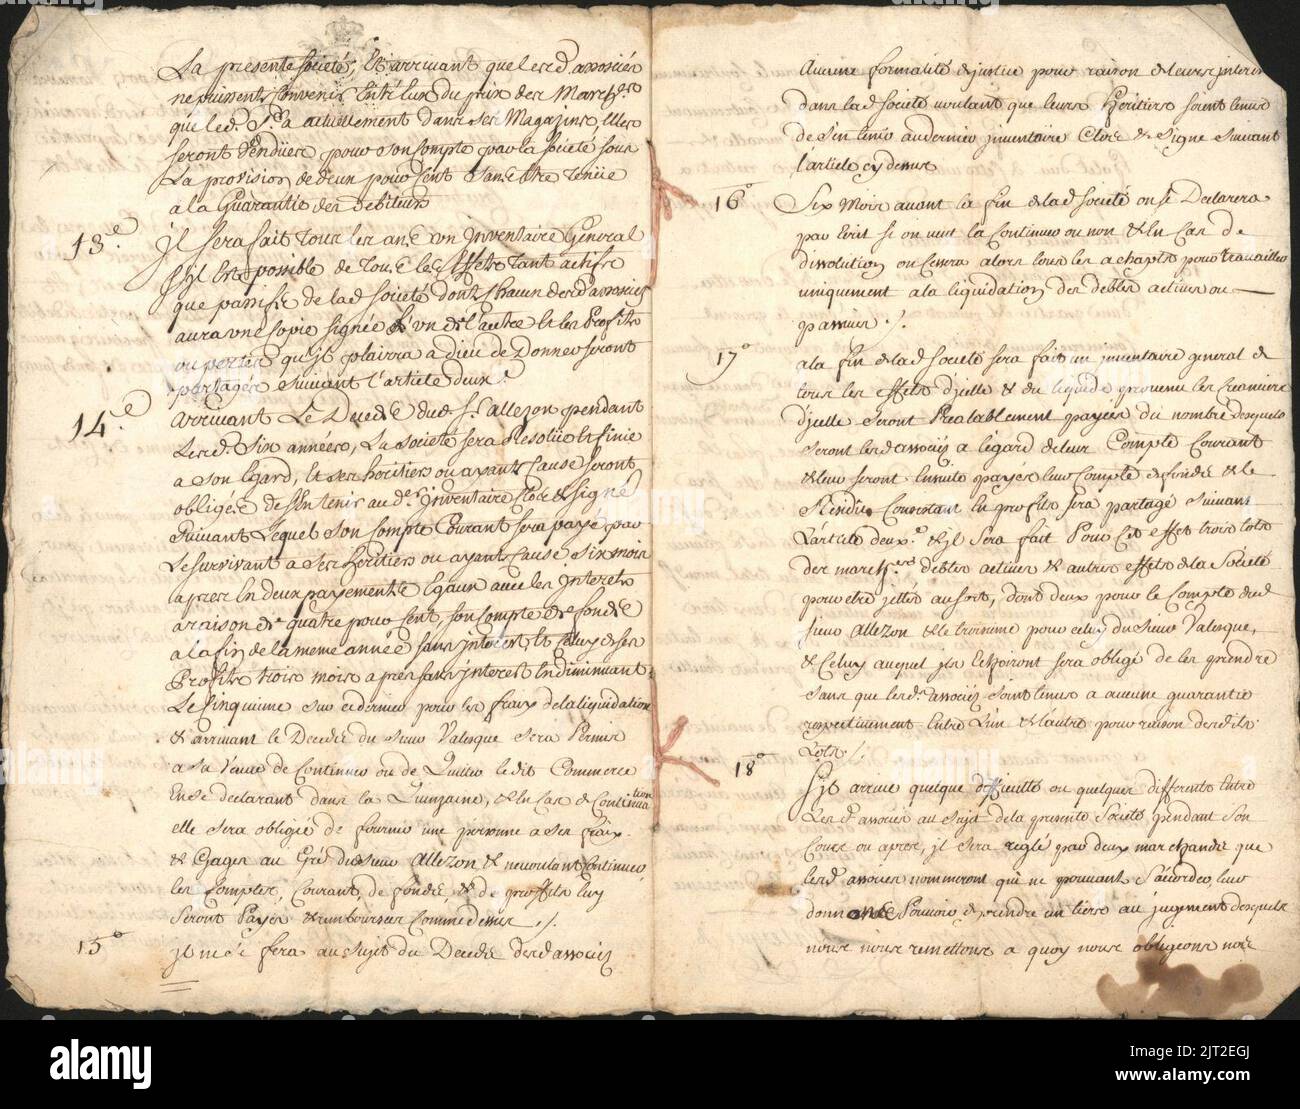 La presente societé, Et arrivant que lesd. associés
ne puissent convenir Entr'Eux du prix des March.ses
que led. Sr. a actuellement dans ses Magazins, Elles
seront Vendües pour son Compte par la société sous
La provision de deux pour Cent sans Etre tenüe
a la Guarantie des Debiteurs
13.e Jl sera fait tous les ans un Jnventaire General
s'il Est possible de tous les Effets tant actifs
que passifs de lad. societé dont Chacun desd. associés
aura une Copie signée L'un de l'autre Et les Profits
ou pertes qu'il plairra a dieu de Donner seront
partagés suivant l'article deux.e
14.e arrivant Le Decedé dud. Sr. allezon pendant
Lesd. six années, La societé sera Resolüe Et finie
a son Egard, Et ses heritiers ou ayants Cause seront
obligés de s'En tenir au d.er Jnventaire Clos & signé
suivant Lequel son Compte Courant sera payé par
Le survivant a ses heritiers ou ayants Cause six mois
apres En deux payements Egaux avec les Jnterets
a raison de quatre pour Cent, son Compte de fonds
a la fin de la meme année sans jnterest, Et Celuy de ses
Profits trois mois apres sans jnterest En diminuant
Le Cinquieme sur ce dernier pour les fraix de la liquidation
& arrivant le Decedé du sieur Valesque sera Permis
a sa Veuve de Continuer ou de Quitter ledit Commerce
En se declarant dans la Quinzaine, & En Cas de Continuation
elle sera obligée de fournir une personne a ses fraix
& Gages au Gré du sieur Allezon & ne voulant Continuer
les Comptes, Courant, de fonds, & de proffits luy
seront Payés & remboursés Comme dessus ./.
15.o Jl ne se fera au sujet du Decedé desd. associés
aucune formalité de justice pour raison de leurs jnterets
dans lad. Societé voulant que leurs Heritiers soient tenus
de s'en tenir au dernier jnventaire Clos & Signé suivant
l'article cy dessus
16.o Six Mois avant la fin de lad. Societé on se Declarera
par Ecrit si on veut la Continuer ou non & En Cas de
dissolution on Cessera alors tous les achapts pour travailler
uniquement a la liquidation des debtes actives ou
passives ./.
17.o a la fin de lad. Societé sera fait un jnventaire general de
tous les effets d'jcelle & du liquide provenu les Creanciers
d'jcelle seront Prealablement payés du nombre desquels
seront lesd. associés a l'égard de leur Compte Courant
& leur seront Ensuite payés leur Compte de fonds & le
Residu Consistant En profits sera partagé suivant
L'article deux.e & jl sera fait Pour Cet effet trois lots
des march.ses debtes actives & autres effets de la Societé
pour être jettés au sort, dont deux pour le Compte dud.
sieur Allezon & le troisieme pour celuy du sieur Valesque,
& Celuy auquel jls Echoiront sera obligé de les prendre
sans que lesd. associés soient tenus a aucune guarantie
respectivement Entre L'un & l'autre pour raison desdits
Lots ./.
18.o S'jl arrive quelque difficulté ou quelques differents Entre
Lesd. associés au sujet de la presente Societé pendant son
Cours ou apres, jl sera reglé par deux marchands que
lesd. associés nommeront qui ne pouvant s'accorder, leur
donnons Pouvoir de prendre un tiers au jugement desquels
nous nous remettons a quoy nous obligeons nos
alamy
Image ID: 2JT2EGJ
www.alamy.com